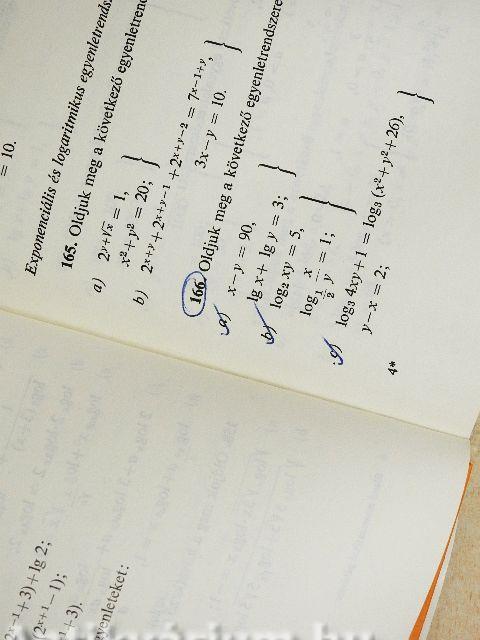 = 10.
Exponenciális és logaritmikus egyenletrends
165. Oldjuk meg a következő egyenletrend
a) 2^{y+√x} = 1,
x²+y² = 20;
b) 2^{x+y}+2^{x+y-1}+2^{x+y-2} = 7^{x-1+y},
3x-y = 10.
166 Oldjuk meg a következő egyenletrendszere
a) x-y = 90,
lg x+ lg y = 3;
b) log₂ xy = 5,
log_{1/2} x/y = 1;
c) log₃ 4xy+1 = log₃ (x²+y²+26),
y-x = 2;
4*
2^{x-1}+3)+lg 2;
(2^{x+1}-1);
^{-1}+3).
gyenleteket: